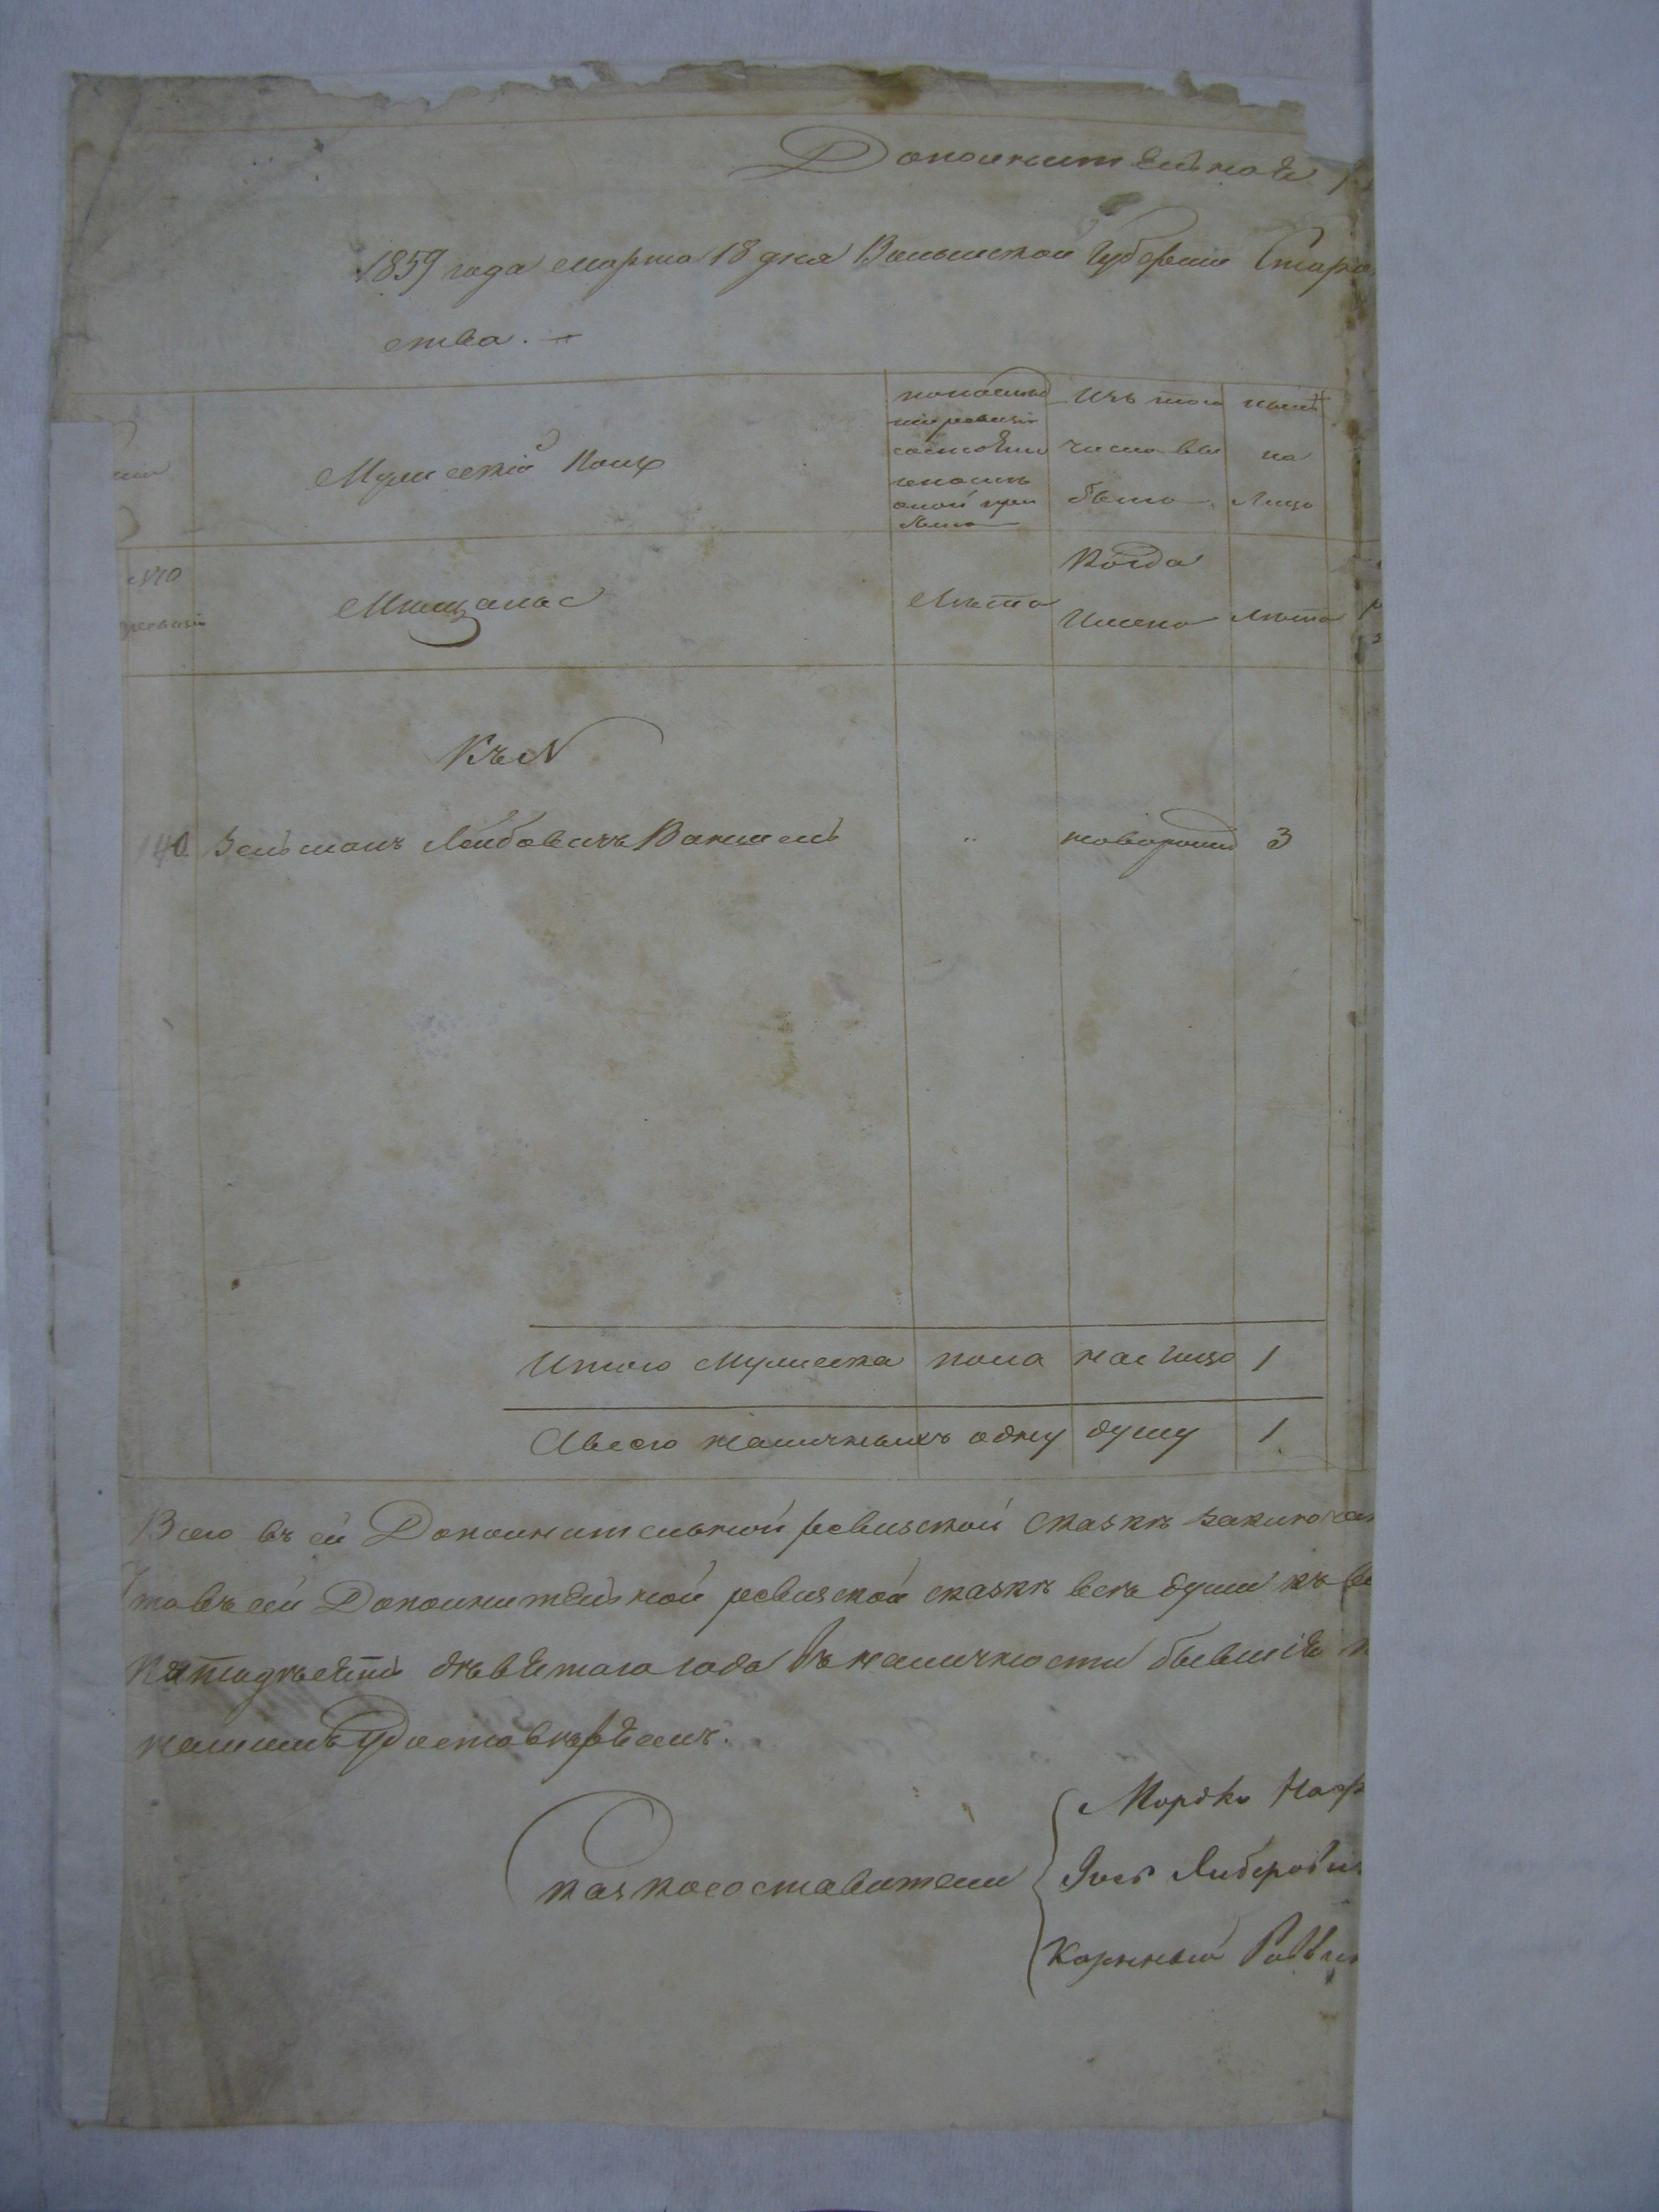 Дополнительная
1859 года марта 18 дня Волынской Губернии Старо
ства. —
Мужескій Полъ
по последней ревизіи состояло и после оной прибыло
Изъ того числа выбыло
ныне на Лицо
№ по
ревизіи
Мещане
Лета
Когда Именно
Лета
Къ №
140 Зельманъ Лейбовичъ Ваншель „ новорожд 3
Итого мужеска пола на Лицо 1
А всего наличныхъ одну душу 1
Всего въ сей Дополнительной ревизской сказке заключае
Что въ сей Дополнительной ревизской сказке все души къ
пятьдесятъ девятого года въ наличности бывшіе
нашимъ удостоверяемъ.
Сказкосоставители
Мордко Наф
Зось Либерови
Коренный Равви